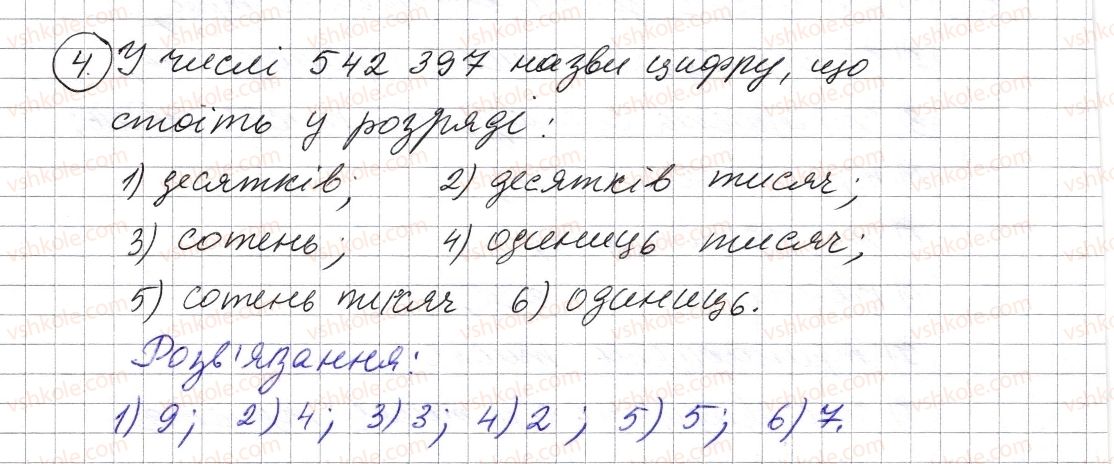 4. У числі 542 397 назви цифру, що
стоїть у розряді:
1) десятків; 2) десятків тисяч;
3) сотень; 4) одиниць тисяч;
5) сотень тисяч 6) одиниць.
Розв'язання:
1) 9; 2) 4; 3) 3; 4) 2; 5) 5; 6) 7.